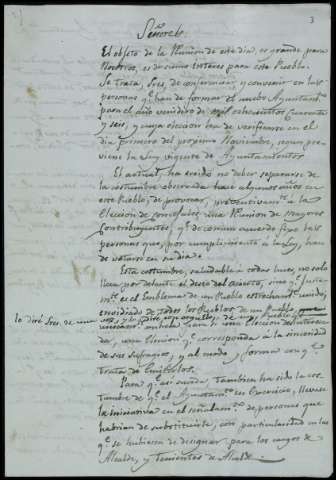 3
Señores.
El objeto de la Reunion de este dia, es grande, para
Nosotros, es de sumo interes para este Pueblo.
Se trata, Sres, de conferenciar y convenir en las
personas q.e han de formar el nuebo Ayuntam.to
para el año venidero de mil ochocientos cuarenta
y seis, y cuya eleccion ha de verificarse en el
dia primero del proximo Noviembre, segun pre-
viene la Ley vigente de Ayuntamientos
El actual ha creido no deber separarse de
la costumbre observada hace algunos años en
este Pueblo, de provocar, preventivam.te a la
Eleccion de concejales, una Reunion de mayores
contribuyentes, q.e de comun acuerdo fixe las
personas que, por cumplimiento a la Ley, han
de votarse en su dia.
Esta costumbre, saludable a todas luces, no solo
lleva por delante el deseo del acierto, sino q.e
es el Emblema de un Pueblo estrecham.te unido,
envidiado de todos los Pueblos, de un Pueblo
lo diré Sres de una vez, y lo diré con orgullo, de un Pueblo
una Eleccion
da, una Eleccion q.e corresponda a la sinceridad
de sus sufragios, y al modo y forma con q.e
trata de emitirlos.
Para q.e asi suceda, tambien ha sido la cos-
tumbre de q.e el Ayuntam.to en Egercicio, llevase
la iniciativa en el señalam.to de personas que
habian de substituirle, con particularidad en las
q.e se hubiesen de designar para los cargos de
Alcalde, y Tenientes de Alcalde.